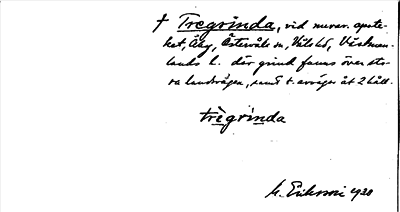 † Tregrinda, vid nuvar. apote-
ket, Åby, Österåls sn, Våla hd, Västman-
lands l. där grind fanns över sto-
ra landsvägen, samt t. avvägar åt 2 håll.
trègrinda
M. Eriksson 1928